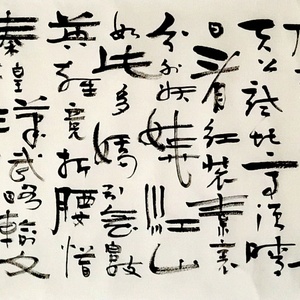 天公試比高須晴
日看紅裝素裹
分外妖嬈江山
如此多嬌引無數
英雄競折腰惜
秦皇漢武略輸文